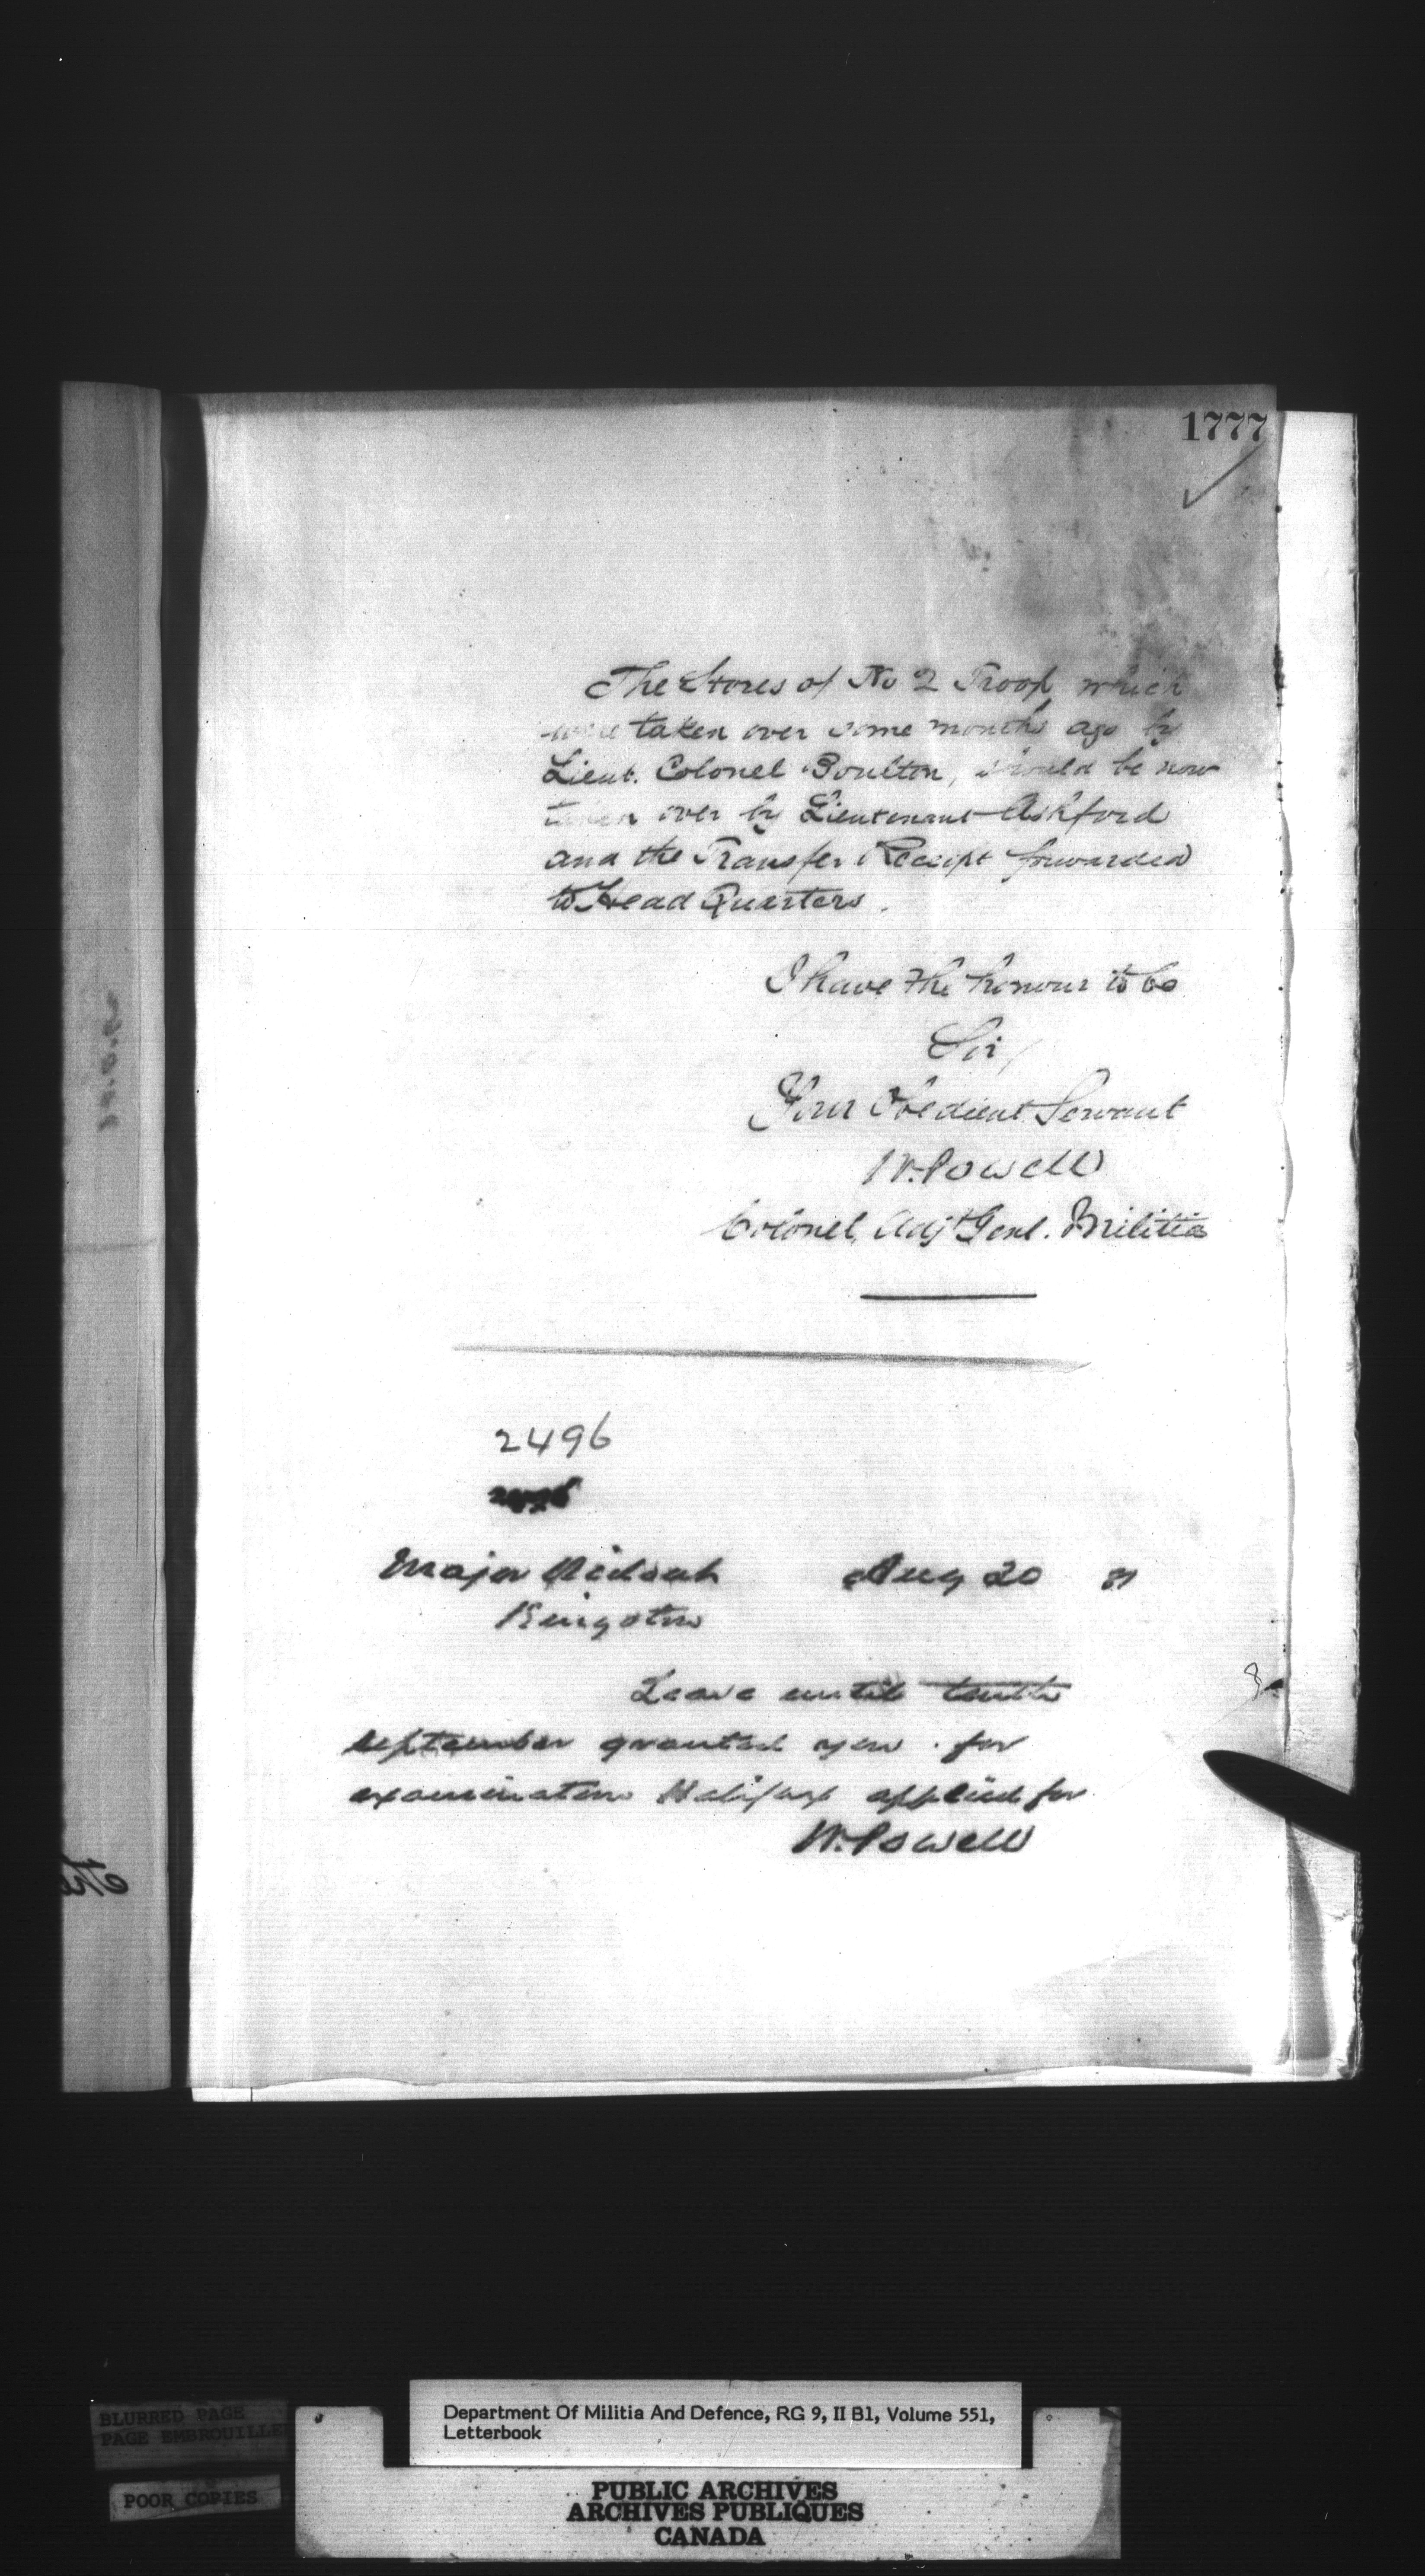 1777
The Stores of No 2 Troop, which
were taken over some months ago by
Lieut. Colonel Boulton, should be now
taken over by Lieutenant Ashford
and the Transfer Receipt forwarded
to Head Quarters.
I have the honour to be
Sir,
Your Obedient Servant
W. Powell
Colonel, Adjt Genl. Militia
2496
Major Aug 20 81
Kingston
Leave until tenth
September granted you for
examination Halifax applied for
W. Powell
BLURRED PAGE
PAGE EMBROUILLE
POOR COPIES
Department Of Militia And Defence, RG 9, II B1, Volume 551,
Letterbook
PUBLIC ARCHIVES
ARCHIVES PUBLIQUES
CANADA